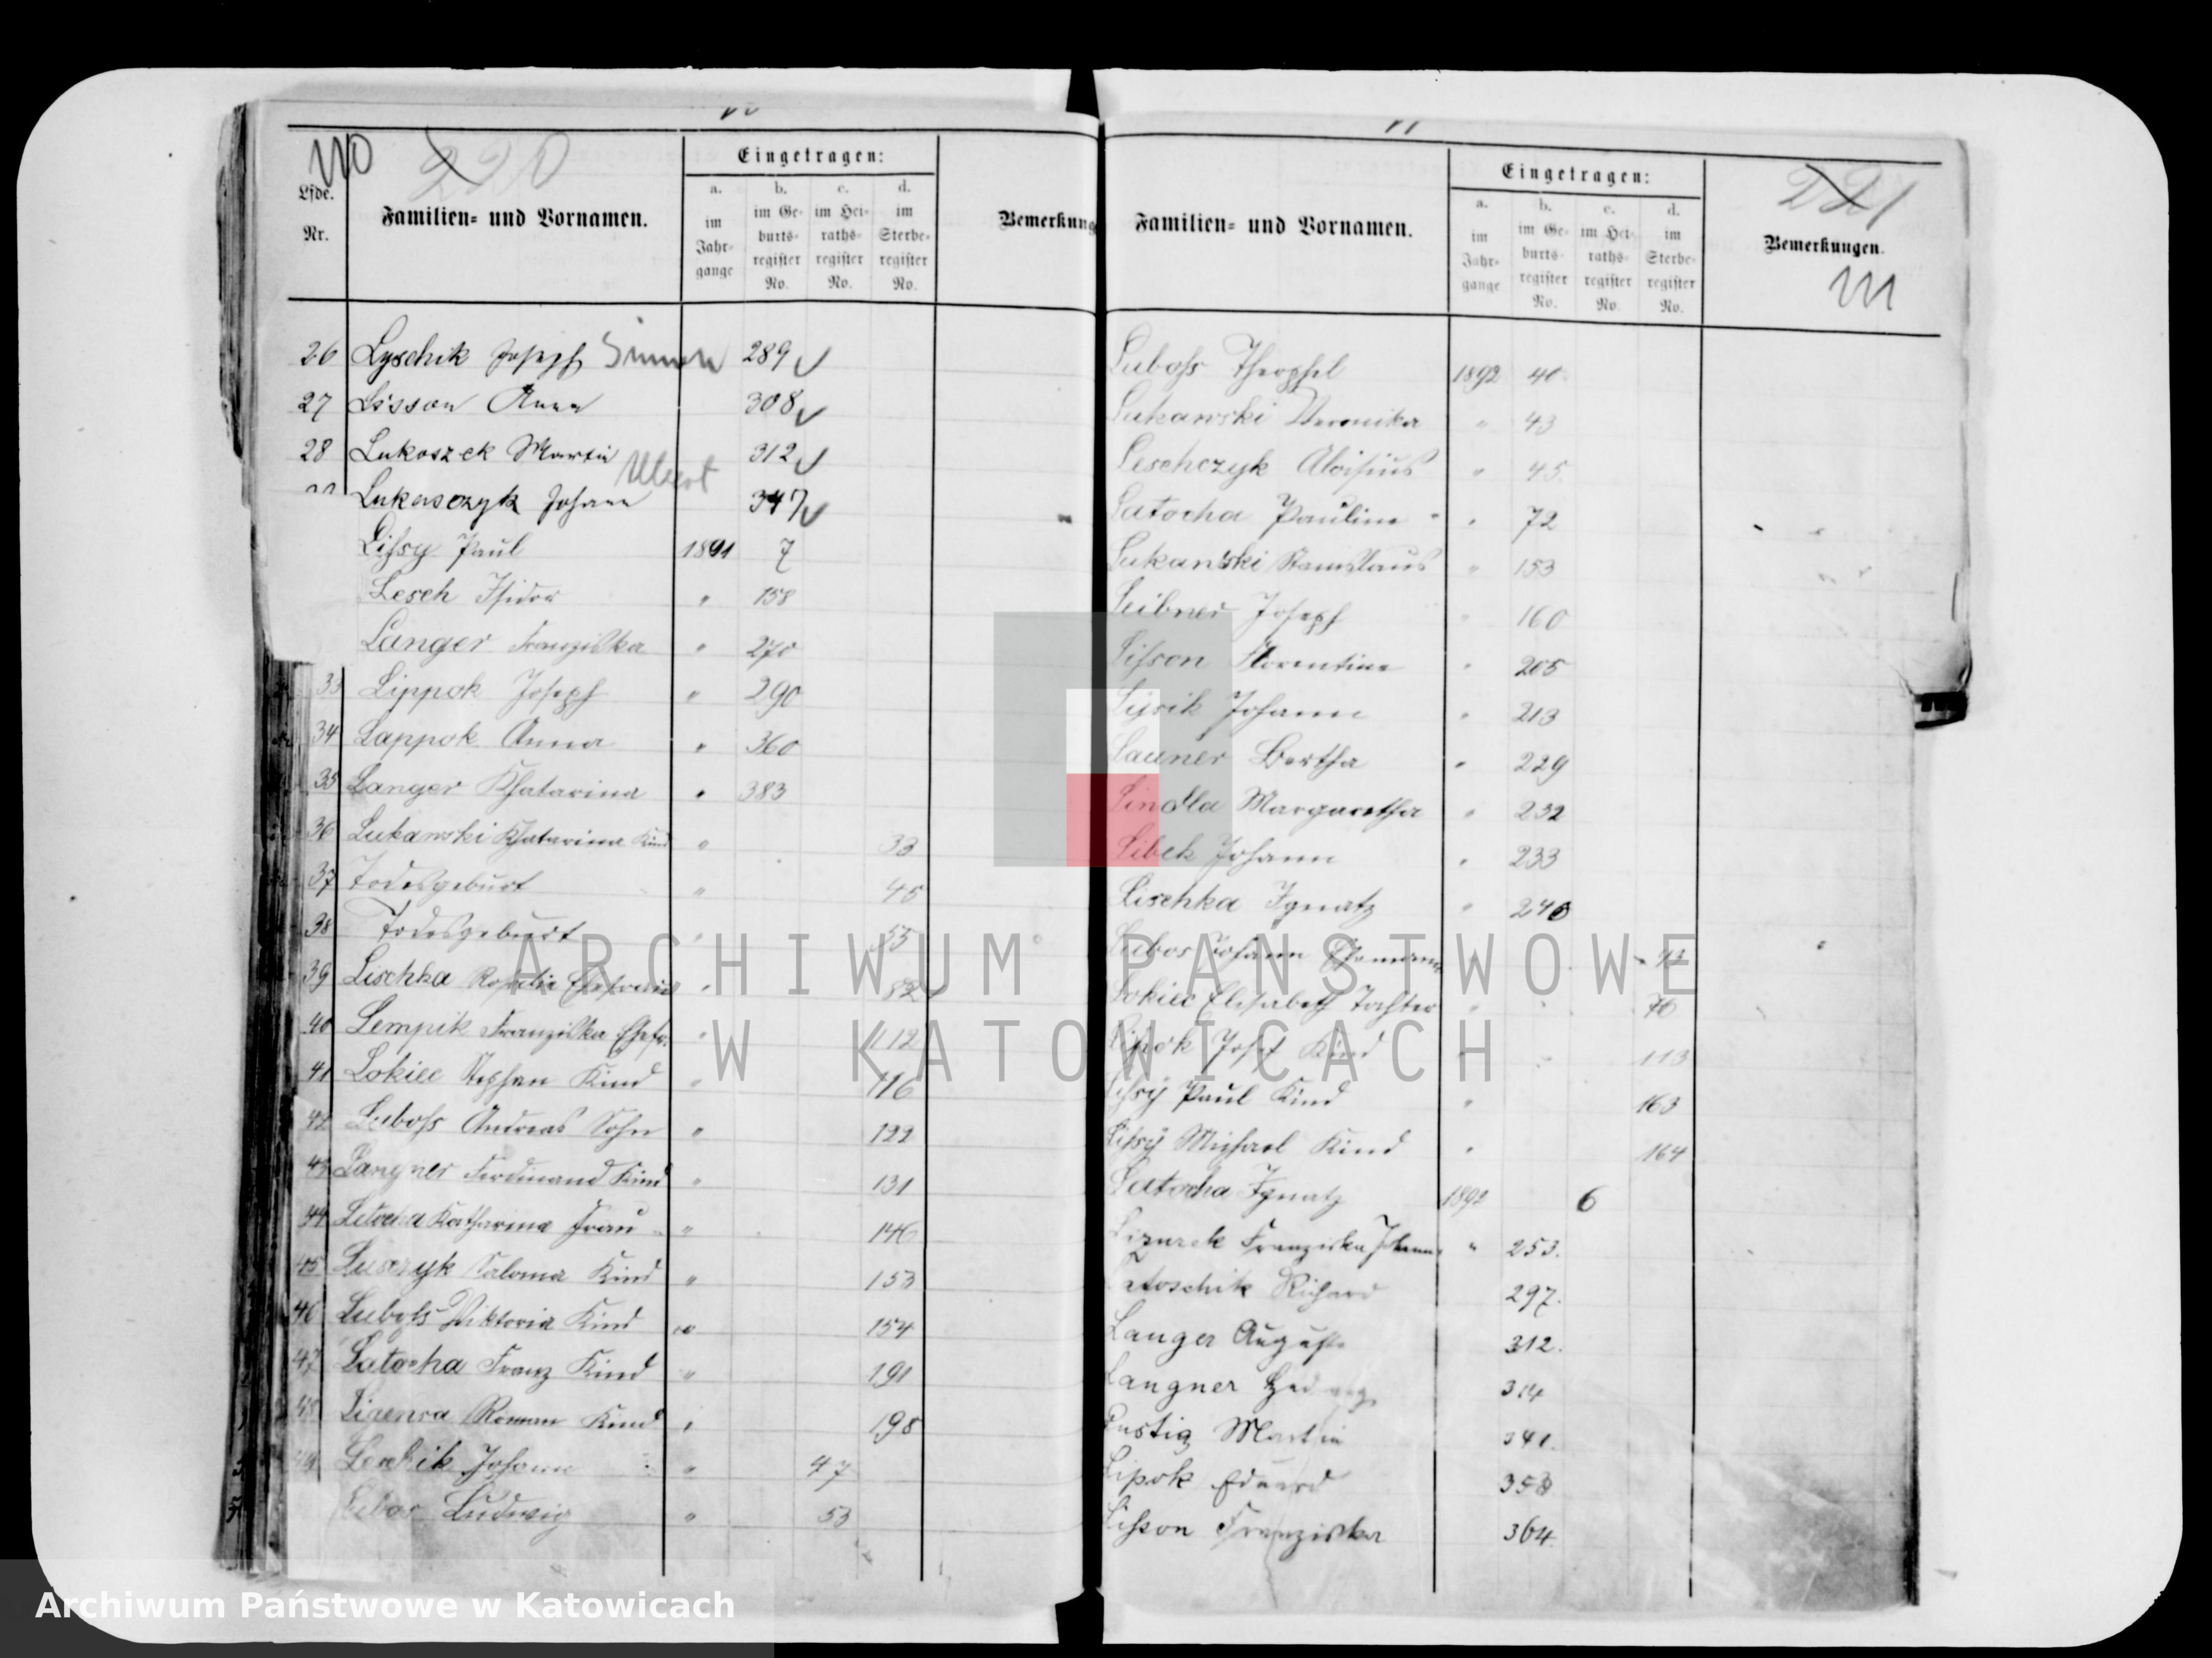 110 220
Lfde. Nr.
Familien- und Vornamen.
Eingetragen:
a. im Jahrgange
b. im Geburtsregister No.
c. im Heirathsregister No.
d. im Sterberegister No.
Bemerkung
26 Lyschik Joseph Simon 289
27 Lisson Anna 308
28 Lukoszek Martin 312
Lukasczyk Johann 347
Lissy Paul 1891 7
Lesch Isidor " 158
Langer Franziska " 270
33 Lippok Joseph " 290
34 Lappok Anna " 360
35 Langer Khatarina " 383
36 Lukawski Khatarina Kind " 33
37 Todesgeburt " 45
38 Todesgeburt " 55
39 Lischka Rosalie Ehefrau " 82
40 Lempik Franziska Ehefr. " 112
41 Lokiec Stephan Kind " 116
42 Luboss Andreas Sohn " 122
43 Langner Ferdinand Kind " 131
44 Latocha Katharina Frau " 146
45 Kind " 153
46 Luboss Viktoria Kind " 154
47 Latocha Franz Kind " 191
48 Roman Kind " 198
49 Johann " 47
Ludwig " 53
Familien- und Vornamen.
Eingetragen:
a. im Jahrgange
b. im Geburtsregister No.
c. im Heirathsregister No.
d. im Sterberegister No.
221
Bemerkungen.
111
Luboss Theophil 1892 40
Lukawski Veronika " 43
Leschczyk Aloisius " 45
Latocha Pauline " 72
Lukawski Stanislaus " 153
Leibner Joseph " 160
Lisson Florentine " 205
Johann " 213
Launer Bertha " 229
Lindla Margaretha " 232
Libek Johann " 233
Lischka Ignatz " 240
Lubos Johann Ehemann " 43
Lokiec Elisabeth Tochter " 76
Lipok Josef Kind " 113
Lissy Paul Kind " 163
Lissy Michael Kind " 164
Latocha Ignatz 1892 6
Lizurek Franziska Johanna " 253.
Latoschik Richard 297.
Langer Auguste 312.
Langner Hedwig 314
Lustig Martin 341.
Lipok Eduard 353
Lisson Franziska 364.
ARCHIWUM PAŃSTWOWE
W KATOWICACH
Archiwum Państwowe w Katowicach